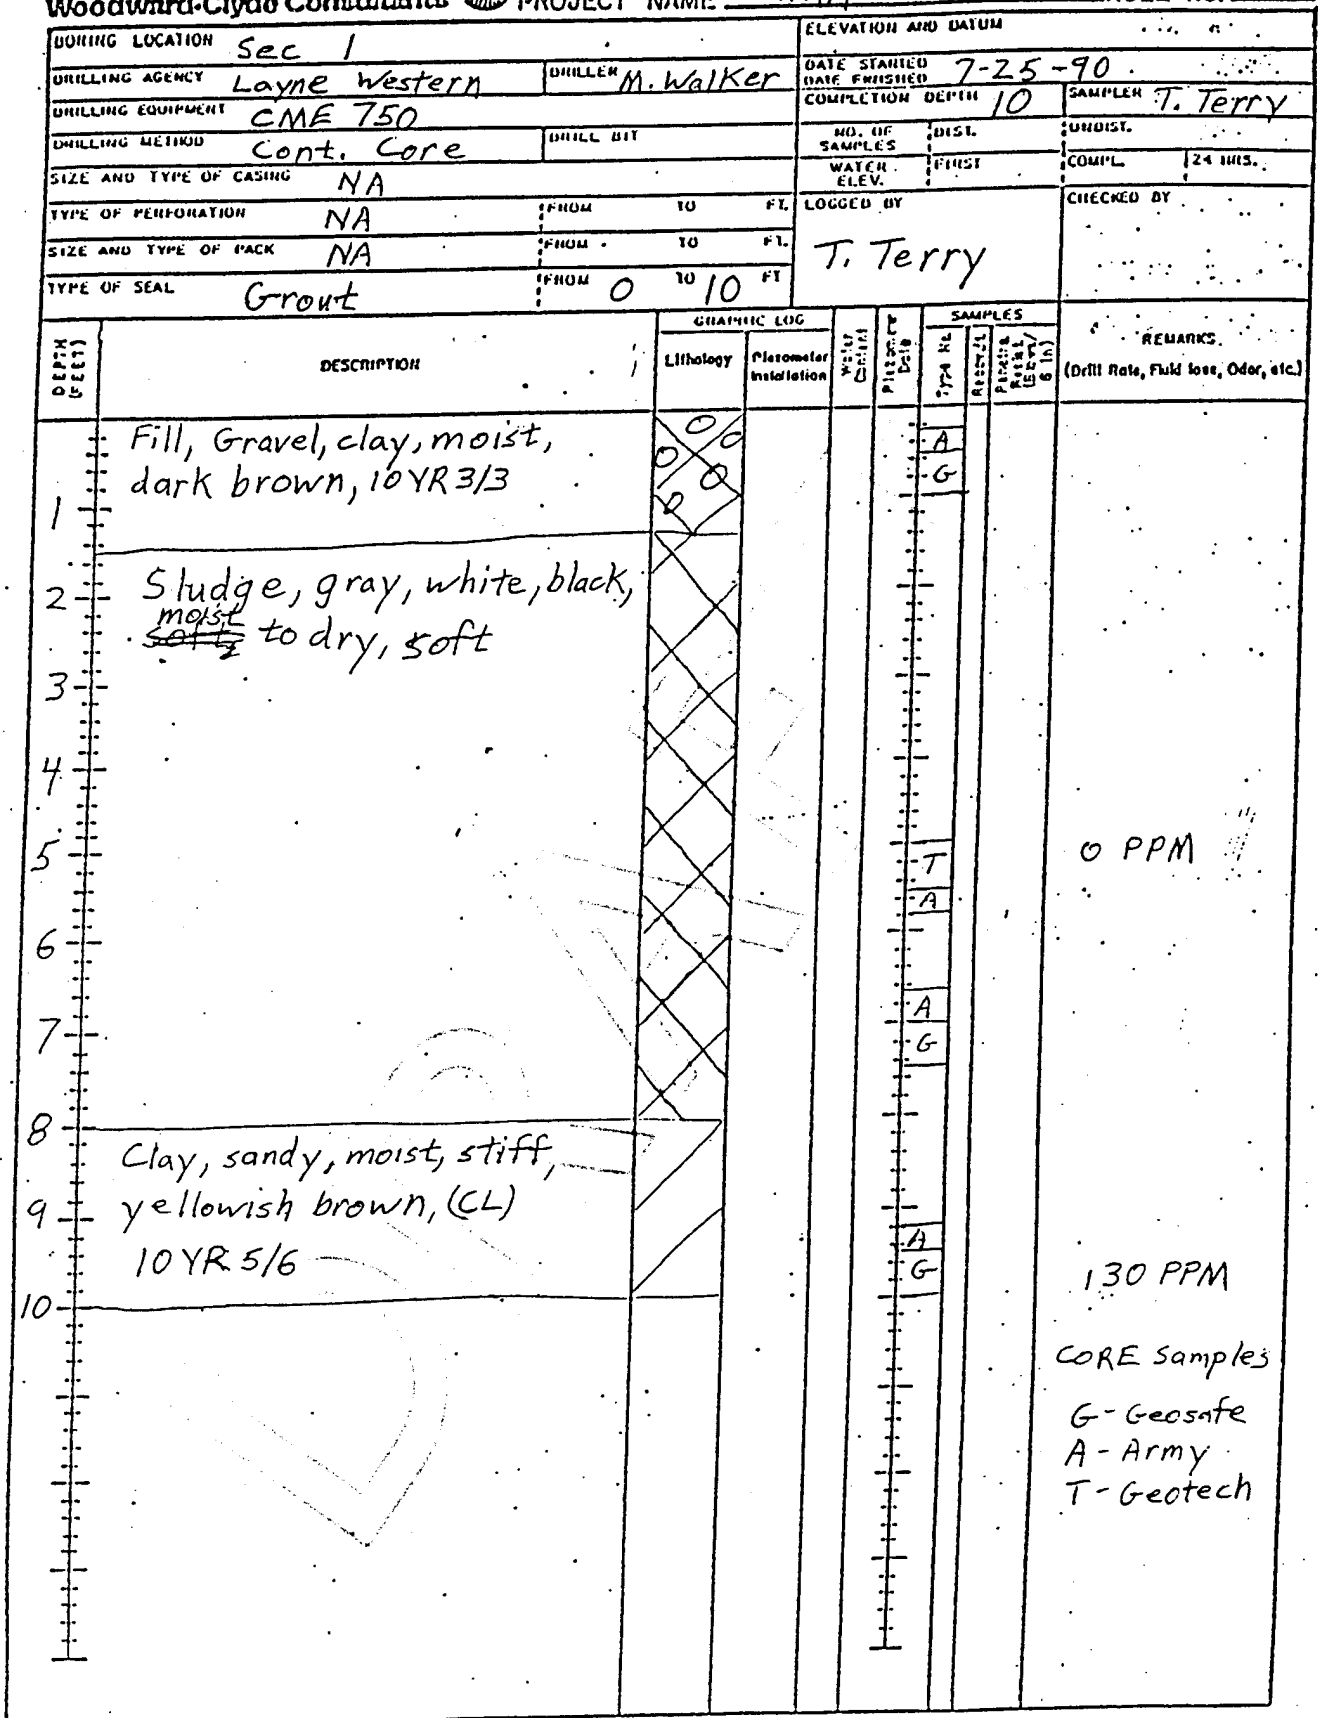 Woodward-Clyde Consultants PROJECT NAME
BORING LOCATION Sec 1 ELEVATION AND DATUM
DRILLING AGENCY Layne Western DRILLER M. Walker DATE STARTED DATE FINISHED 7-25-90
DRILLING EQUIPMENT CME 750 COMPLETION DEPTH 10 SAMPLER T. Terry
DRILLING METHOD Cont. Core DRILL BIT NO. OF SAMPLES DIST. UNDIST.
SIZE AND TYPE OF CASING NA WATER ELEV. FIRST COMPL. 24 HRS.
TYPE OF PERFORATION NA FROM TO FT. LOGGED BY CHECKED BY
SIZE AND TYPE OF PACK NA FROM TO FT. T. Terry
TYPE OF SEAL Grout FROM 0 TO 10 FT
DEPTH (FEET) DESCRIPTION GRAPHIC LOG SAMPLES REMARKS
Lithology Piezometer Installation Water Content Type No. (Drill Rate, Fluid loss, Odor, etc.)
Fill, Gravel, clay, moist, A
dark brown, 10 YR 3/3 G
1
2 Sludge, gray, white, black,
moist
soft, to dry, soft
3
4
5 T 0 PPM
A
6
A
7 G
8
Clay, sandy, moist, stiff,
9 yellowish brown, (CL)
A
10 YR 5/6 G 130 PPM
10
CORE Samples
G - Geosafe
A - Army
T - Geotech